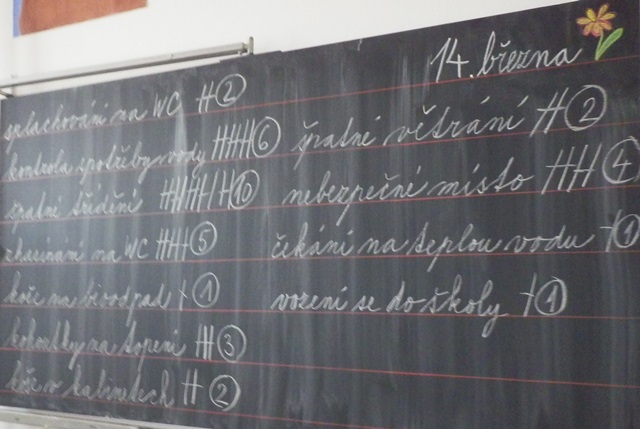 14. března
splachování na WC 2
kontrola spotřeby vody 6
špatné třídění 10
zhasínání na WC 5
koše na bioodpad 1
kohoutky na topení 3
koše v kabinetech 2
špatné větrání 2
nebezpečné místo 4
čekání na teplou vodu 1
vození se do školy 1